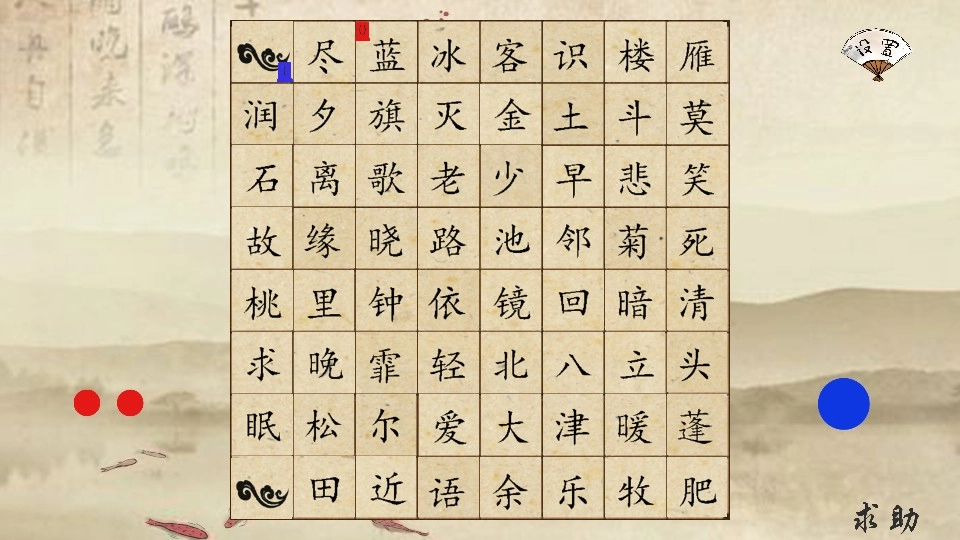 尽蓝冰客识楼雁
设置
润夕旗灭金土斗莫
石离歌老少早悲笑
故缘晓路池邻菊死
桃里钟依镜回暗清
求晚霏轻北八立头
眠松尔爱大津暖蓬
田近语余乐牧肥
求助